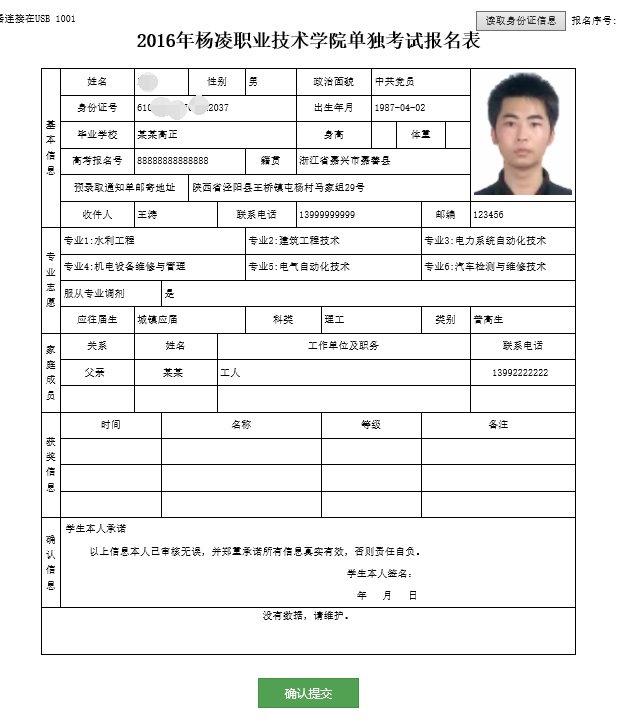 器连接在USB 1001
读取身份证信息 报名序号:
2016年杨凌职业技术学院单独考试报名表
基本信息
姓名 性别 男 政治面貌 中共党员
身份证号 610 2037 出生年月 1987-04-02
毕业学校 某某高正 身高 体重
高考报名号 88888888888888 籍贯 浙江省嘉兴市嘉善县
预录取通知单邮寄地址 陕西省泾阳县王桥镇屯杨村马家组29号
收件人 王涛 联系电话 13999999999 邮编 123456
专业志愿
专业1:水利工程 专业2:建筑工程技术 专业3:电力系统自动化技术
专业4:机电设备维修与管理 专业5:电气自动化技术 专业6:汽车检测与维修技术
服从专业调剂 是
应往届生 城镇应届 科类 理工 类别 普高生
家庭成员
关系 姓名 工作单位及职务 联系电话
父亲 某某 工人 13992222222
获奖信息
时间 名称 等级 备注
确认信息
学生本人承诺
以上信息本人已审核无误，并郑重承诺所有信息真实有效，否则责任自负。
学生本人签名:
年 月 日
没有数据，请维护。
确认提交